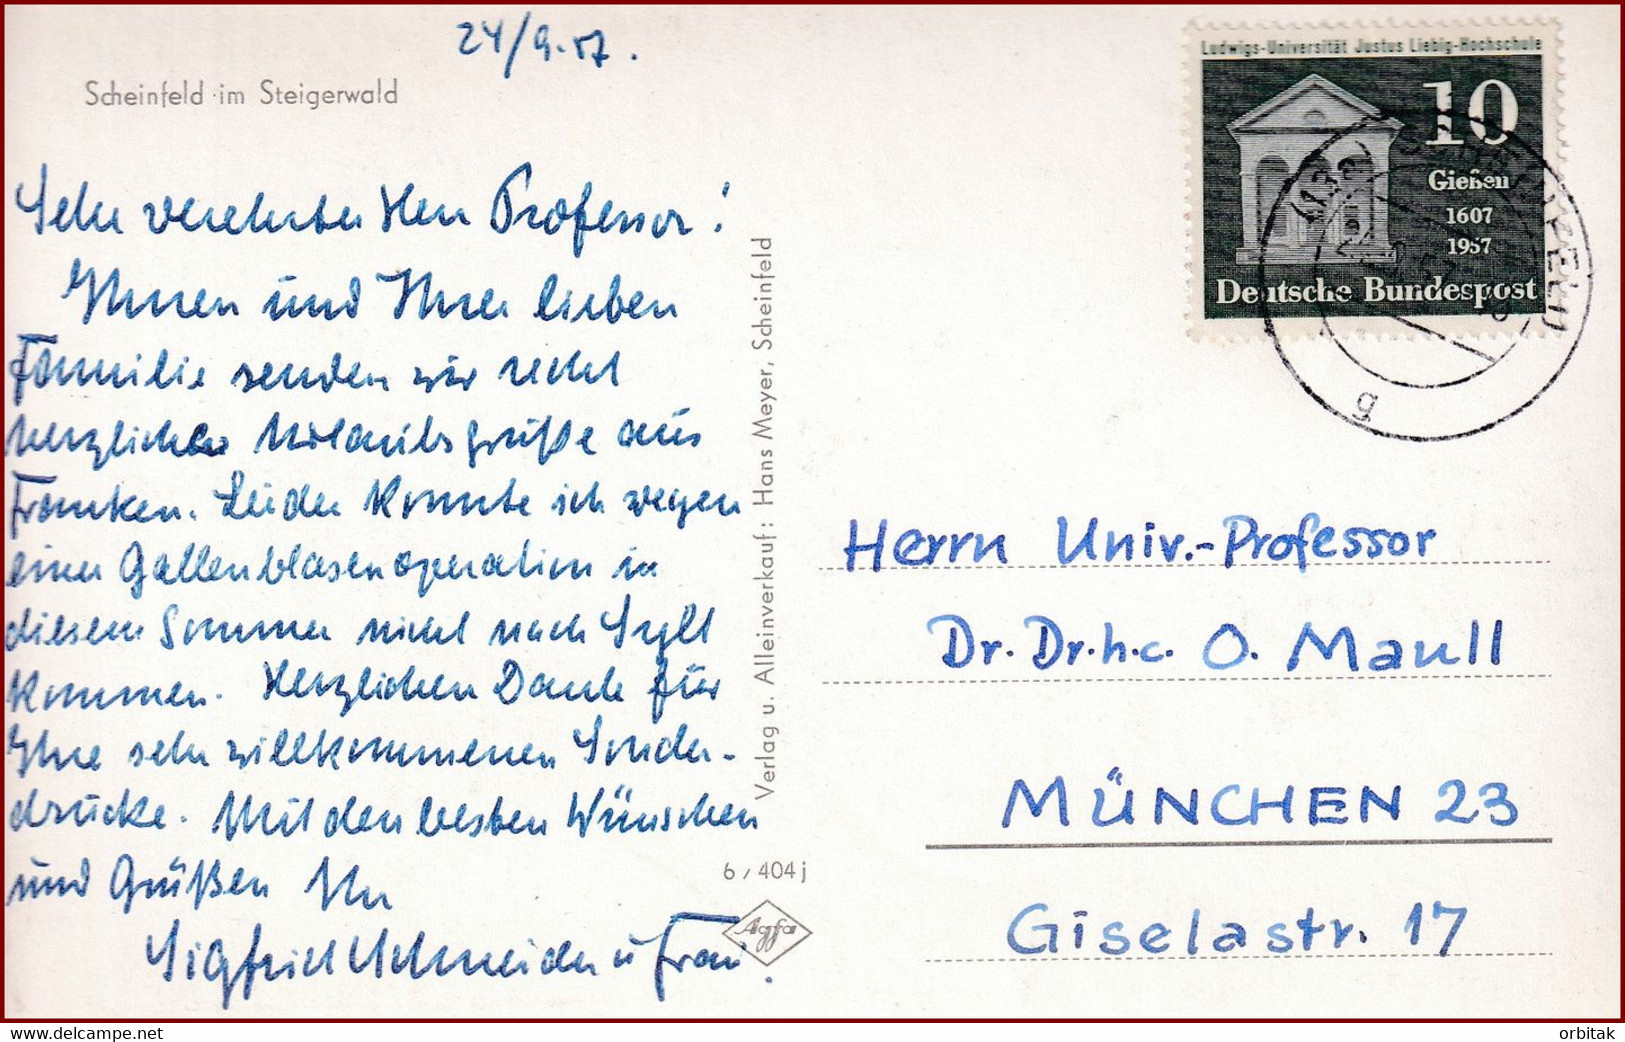 24/9.57.
Scheinfeld im Steigerwald
Sehr verehrter Herr Professor!
Ihnen und Ihrer lieben
Familie senden wir recht
herzliche Urlaubsgrüße aus
Franken. Leider konnte ich wegen
einer Gallenblasenoperation in
diesem Sommer nicht nach Sylt
kommen. Herzlichen Dank für
Ihre sehr willkommenen Sonder-
drucke. Mit den besten Wünschen
und Grüßen Ihr
Sigfrid Schneider u Frau.
Verlag u. Alleinverkauf: Hans Meyer, Scheinfeld
6/404j
Agfa
Ludwigs-Universität Justus Liebig-Hochschule
10
Gießen
1607
1957
Deutsche Bundespost
(13a) SCHEINFELD
g
Herrn Univ.-Professor
Dr. Dr.h.c. O. Maull
MÜNCHEN 23
Giselastr. 17
www.delcampe.net
orbitak